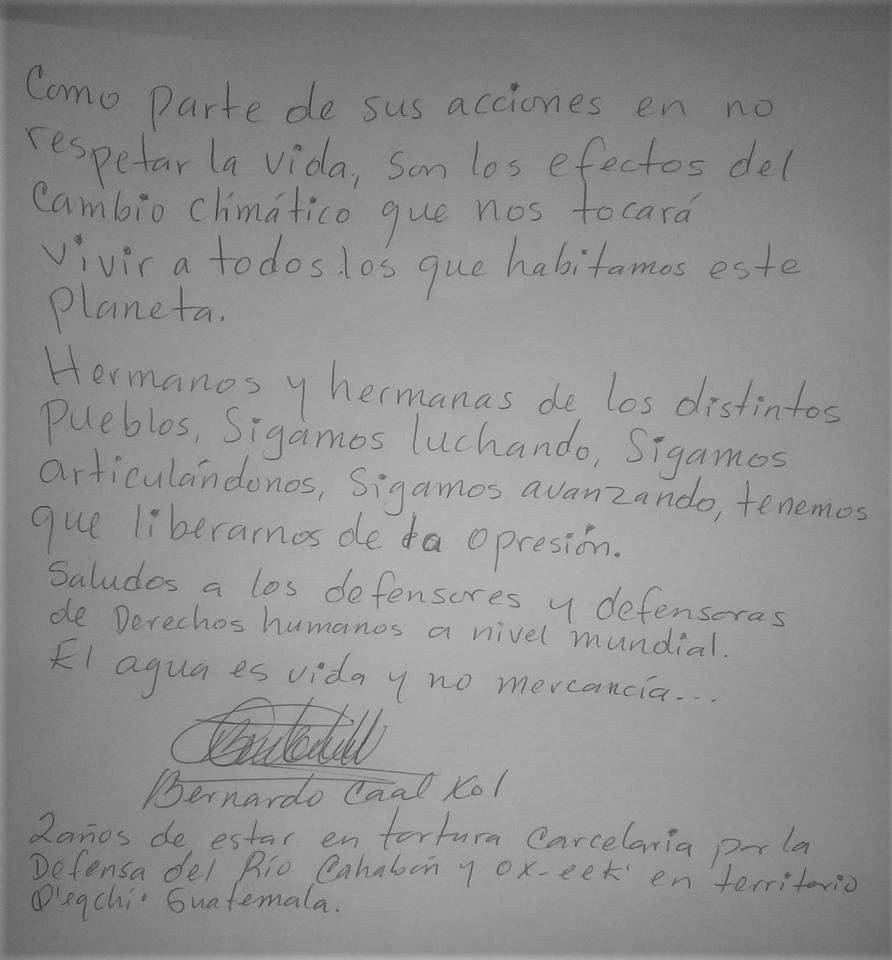 Como parte de sus acciones en no
respetar la vida, son los efectos del
Cambio climático que nos tocará
vivir a todos los que habitamos este
planeta.
Hermanos y hermanas de los distintos
Pueblos, Sigamos luchando, Sigamos
articulándonos, Sigamos avanzando, tenemos
que liberarnos de la opresión.
Saludos a los defensores y defensoras
de Derechos humanos a nivel mundial.
El agua es vida y no mercancía...
Bernardo Caal Xol
2 años de estar en tortura Carcelaria por la
Defensa del Río Cahabón y ox-eek' en territorio
Q'eqchi' Guatemala.